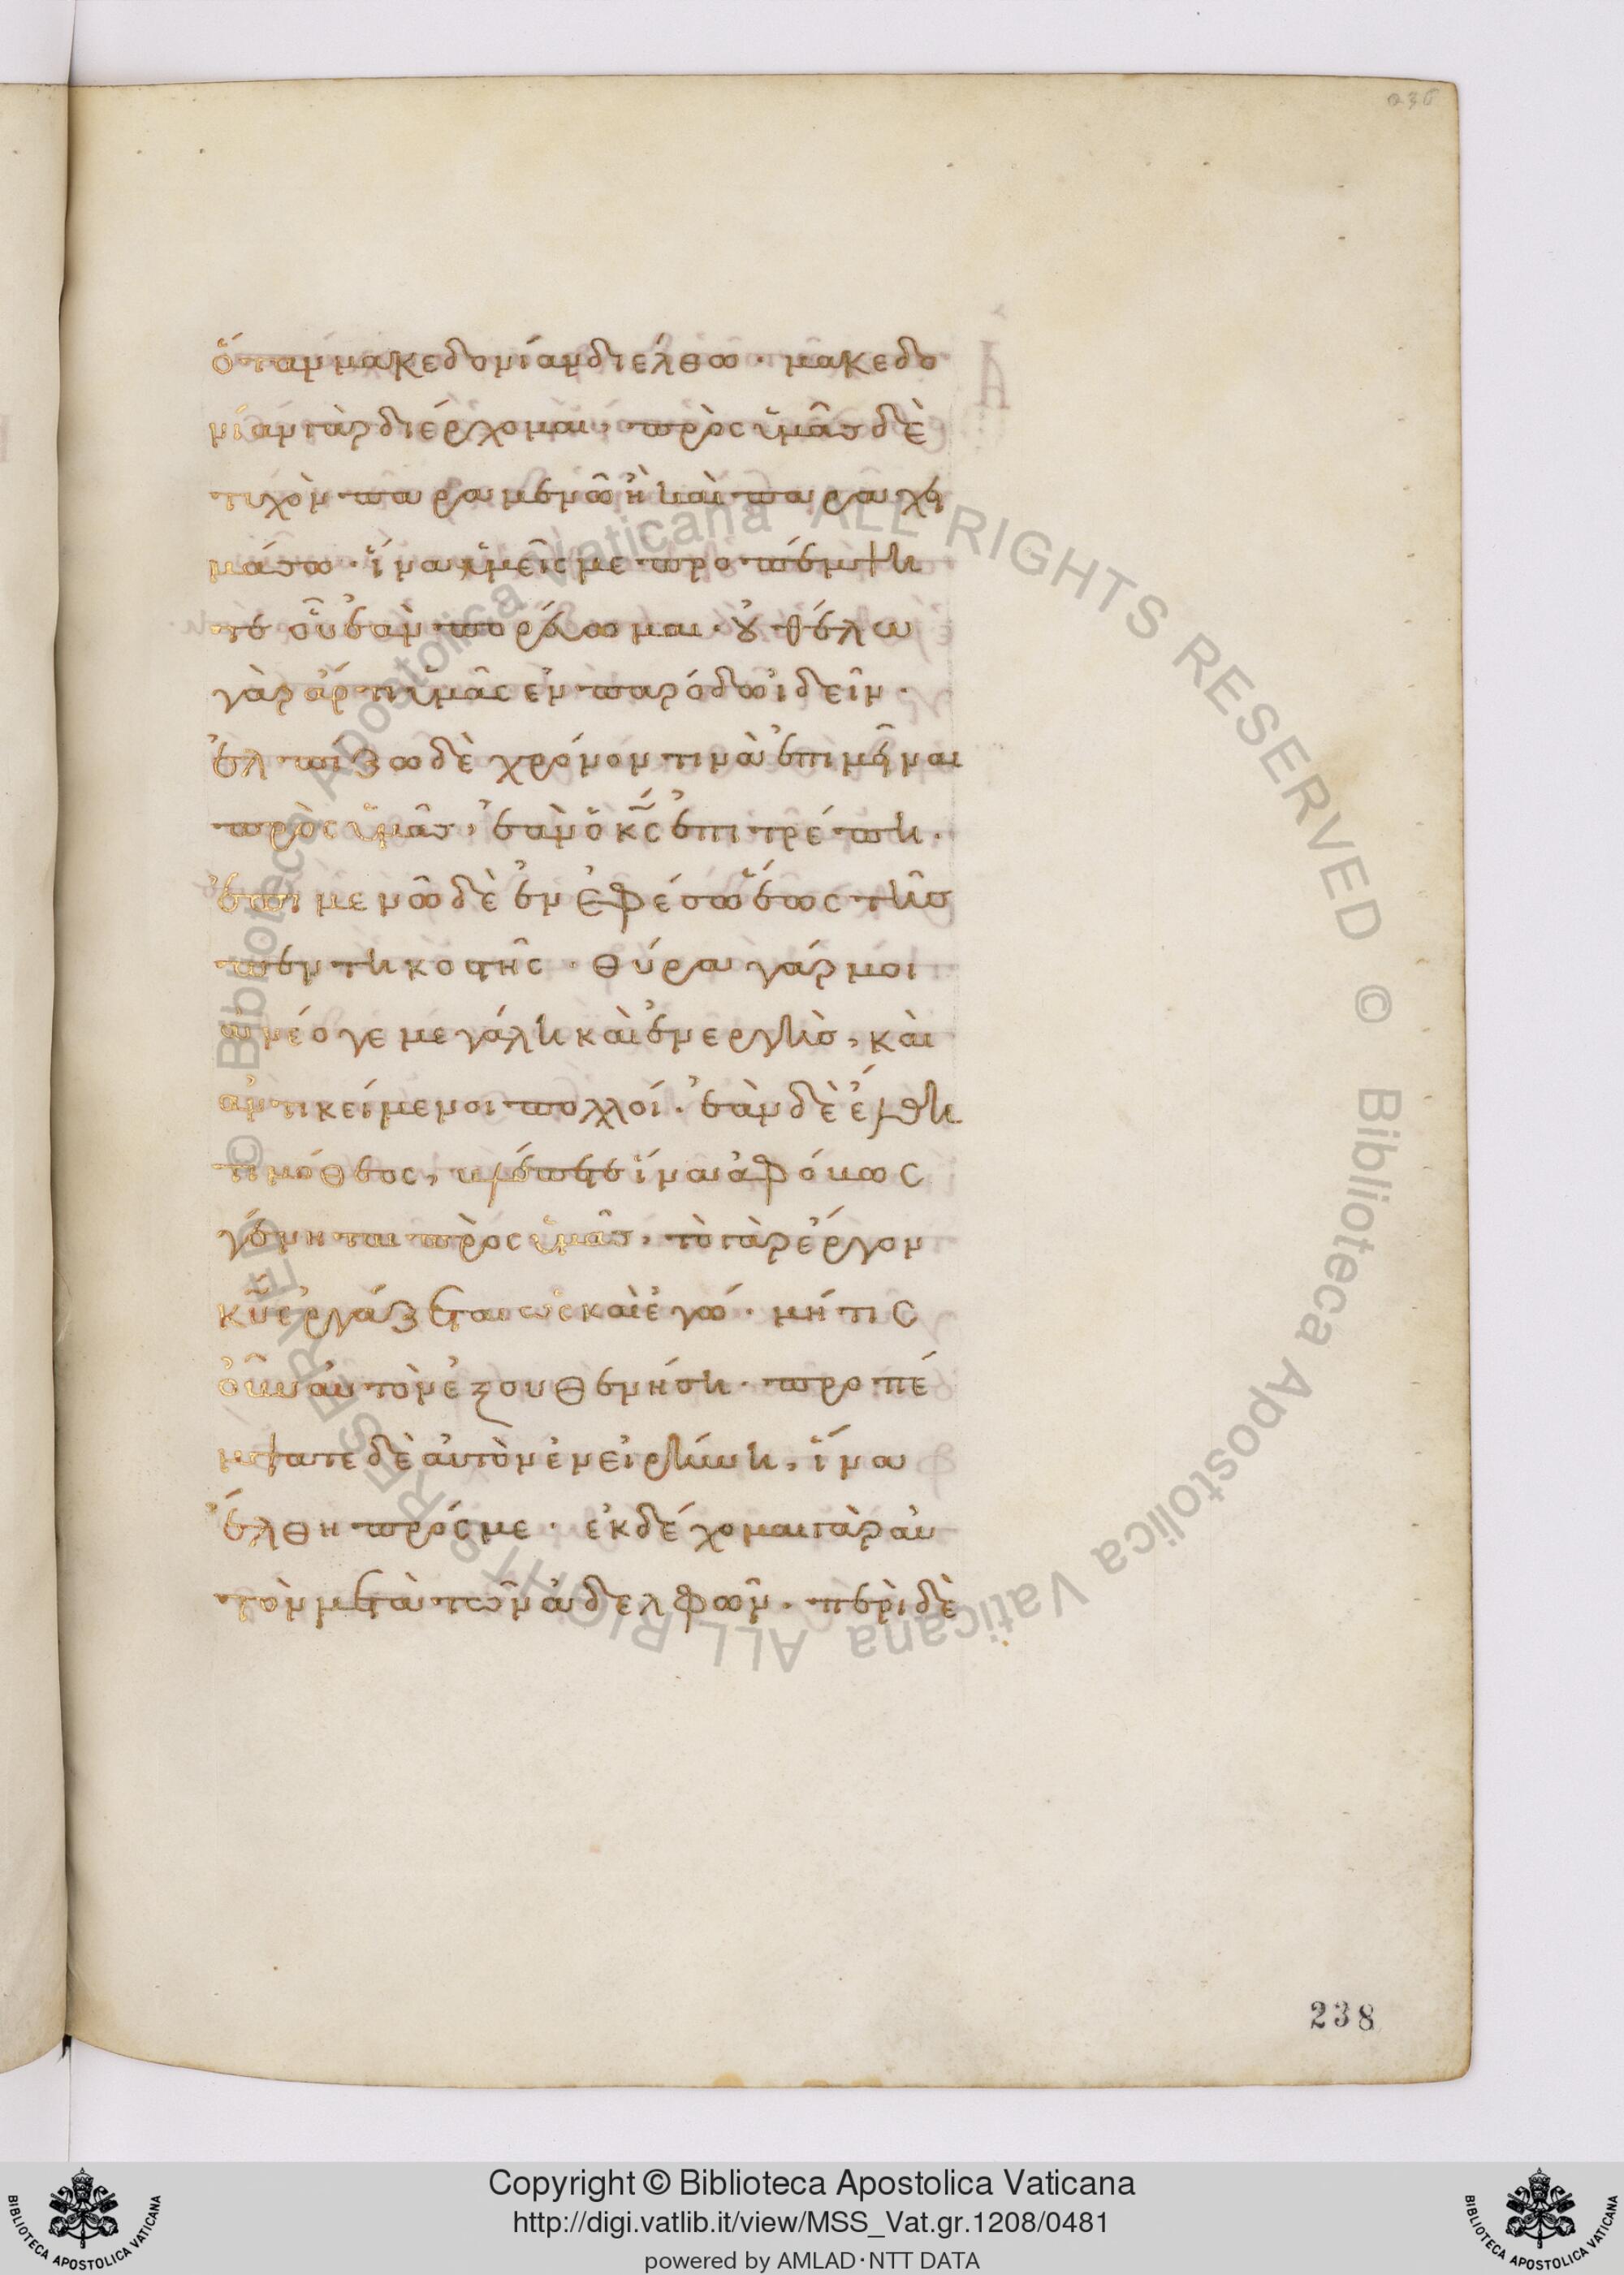 236
ὅταν μακεδονίαν διέλθω · μακεδο
νίαν γὰρ διέρχομαι, πρὸς ὑμᾶς δὲ
τυχὸν παραμενῶ ἢ καὶ παραχει
μάσω · ἵνα ὑμεῖς με προπέμψη
τε οὗ ἐὰν πορεύωμαι · οὐ θέλω
γὰρ ἄρτι ὑμᾶς ἐν παρόδω ἰδεῖν ·
ἐλπίζω δὲ χρόνον τινὰ ἐπιμεῖναι
πρὸς ὑμᾶς, ἐὰν ὁ κς ἐπιτρέπη ·
ἐπιμενῶ δὲ ἐν Ἐφέσω ἕως τῆς
πεντηκοστῆς · θύρα γάρ μοι
ἀνέωγε μεγάλη καὶ ἐνεργὴς, καὶ
ἀντικείμενοι πολλοί · ἐὰν δὲ ἔλθη
τιμόθεος, βλέπετε ἵνα ἀφόβως
γένηται πρὸς ὑμᾶς, τὸ γὰρ ἔργον
κυ ἐργάζεται ὡς καὶ ἐγώ · μή τις
οὖν αὐτὸν ἐξουθενήση · προπέ
μψατε δὲ αὐτὸν ἐν εἰρήνη, ἵνα
ἔλθη πρός με · ἐκδέχομαι γὰρ αὐ
τὸν μετὰ τῶν ἀδελφῶν · περὶ δὲ
238
© Biblioteca Apostolica Vaticana ALL RIGHTS RESERVED © Biblioteca Apostolica Vaticana ALL RIGHTS RESERVED
Copyright © Biblioteca Apostolica Vaticana
http://digi.vatlib.it/view/MSS_Vat.gr.1208/0481
powered by AMLAD·NTT DATA
BIBLIOTECA APOSTOLICA VATICANA
BIBLIOTECA APOSTOLICA VATICANA